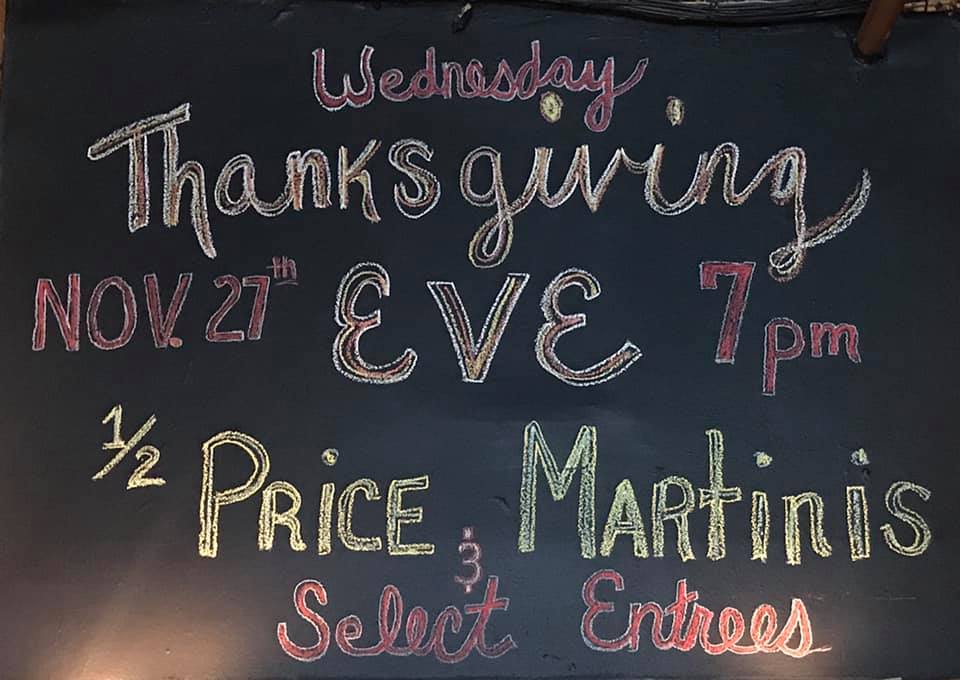 Wednesday
Thanksgiving
NOV. 27th EVE 7pm
1/2 PRICE MARtiniS
&
Select Entrees